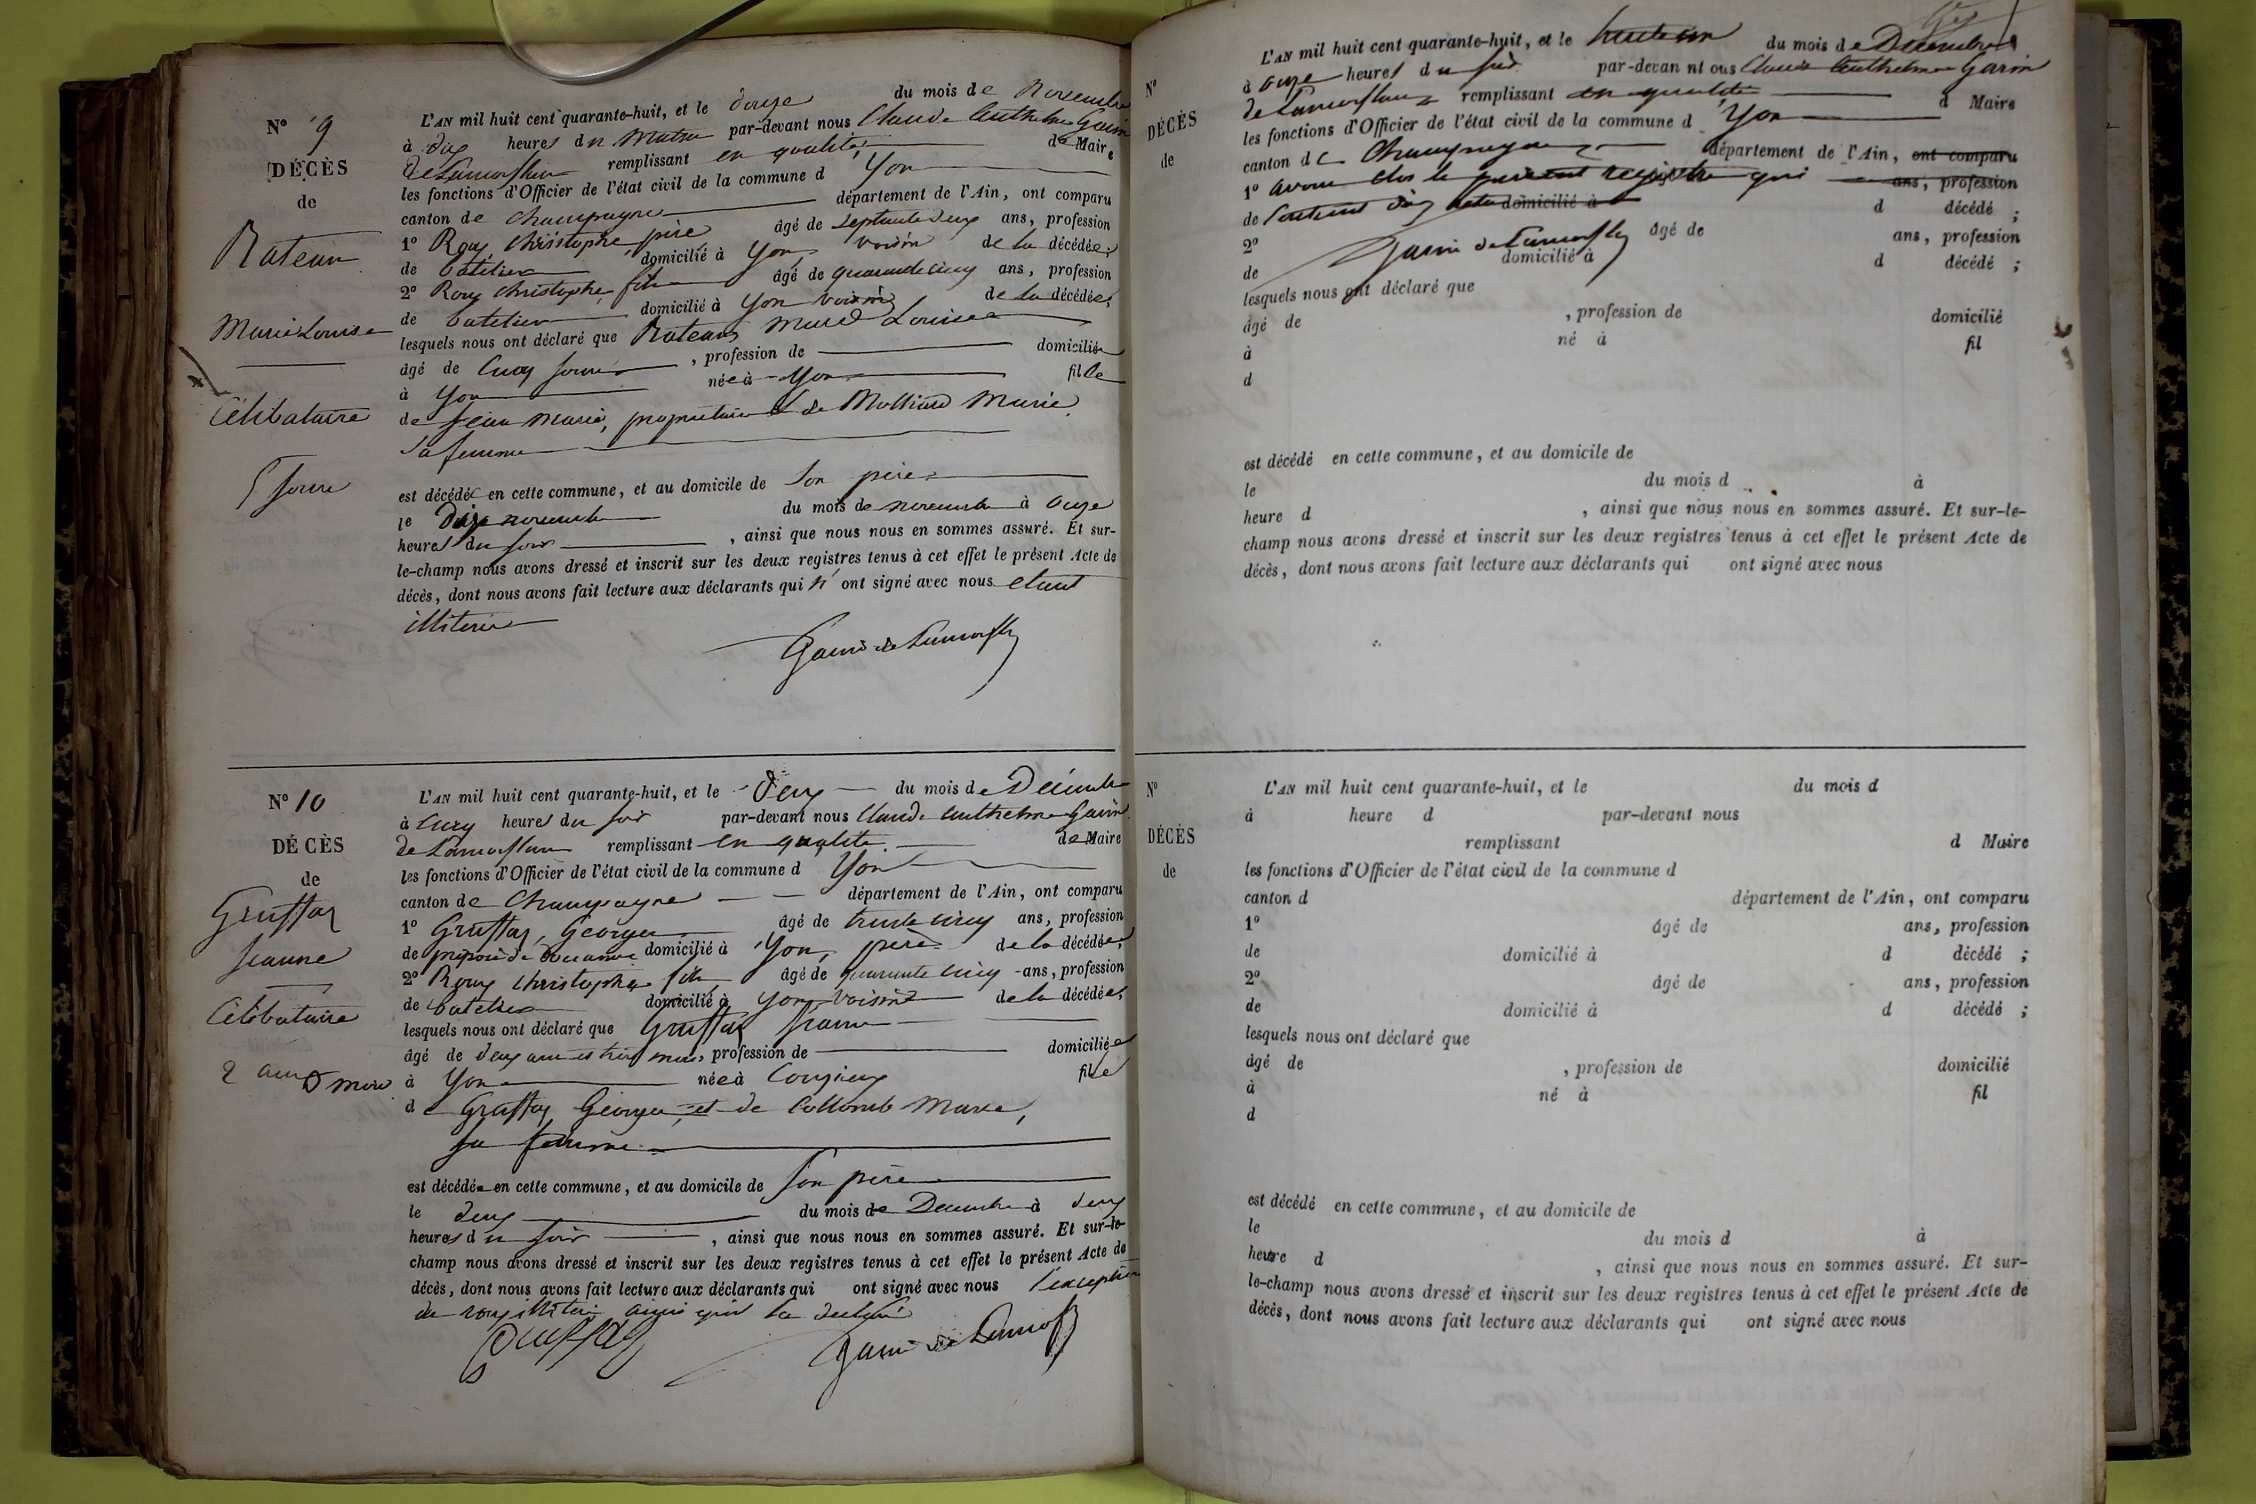 N° 9
DÉCÈS
de
Rateau
Marie Louise
Célibataire
5 jours
L'AN mil huit cent quarante-huit, et le douze du mois de Novembre
à dix heures du matin par-devant nous Claude Anthelme Garin
de Lamorflan remplissant en qualité de Maire
les fonctions d'Officier de l'état civil de la commune d Yon
canton de Champagne département de l'Ain, ont comparu
1° Roux Christophe père âgé de septante deux ans, profession
de batelier domicilié à Yon, voisin de la décédée;
2° Roux Christophe fils âgé de quarante cinq ans, profession
de batelier domicilié à Yon voisin de la décédée;
lesquels nous ont déclaré que Rateau Marie Louise
âgé de Cinq jours, profession de domiciliée
à Yon née à Yon fille
de Jean Marie, propriétaire et de Molliard Marie
sa femme
est décédée en cette commune, et au domicile de son père
le Dix novembre du mois de novembre à onze
heures du soir, ainsi que nous nous en sommes assuré. Et sur-
le-champ nous avons dressé et inscrit sur les deux registres tenus à cet effet le présent Acte de
décès, dont nous avons fait lecture aux déclarants qui n' ont signé avec nous étant
illitérés
Garin de Lamorflan
N° 10
DÉCÈS
de
Gruffaz
Jeanne
Célibataire
2 ans mois
L'AN mil huit cent quarante-huit, et le Deux du mois de Décembre
à Cinq heures du soir par-devant nous Claude Anthelme Garin
de Lamorflan remplissant en qualité de Maire
les fonctions d'Officier de l'état civil de la commune d Yon
canton de Champagne département de l'Ain, ont comparu
1° Gruffaz, Georges âgé de trente cinq ans, profession
de préposé de Douanne domicilié à Yon, père de la décédée;
2° Roux Christophe fils âgé de quarante cinq ans, profession
de batelier domicilié à Yon voisin de la décédée;
lesquels nous ont déclaré que Gruffaz Jeanne
âgé de deux ans et trois mois, profession de domiciliée
à Yon née à Conzieux fille
de Gruffaz Georges, et de Collomb Marie,
sa femme
est décédée en cette commune, et au domicile de son père
le deux du mois de Décembre à deux
heures du soir, ainsi que nous nous en sommes assuré. Et sur-le-
champ nous avons dressé et inscrit sur les deux registres tenus à cet effet le présent Acte de
décès, dont nous avons fait lecture aux déclarants qui ont signé avec nous l'exception
de roux illitéré ainsi qu'il l'a déclaré
Gruffaz Garin de Lamorflan
N°
DÉCÈS
de
L'AN mil huit cent quarante-huit, et le trente un du mois de Décembre
à onze heures du soir par-devan nt ous Claude Anthelme Garin
de Lamorflan remplissant en qualité d Maire
les fonctions d'Officier de l'état civil de la commune d Yon
canton de Champagne département de l'Ain, ont comparu
1° avons clos le présent registre qui ans, profession
de contient dix actes domicilié à d décédé ;
2° âgé de ans, profession
Garin de Lamorflan
de domicilié à d décédé ;
lesquels nous ont déclaré que
âgé de , profession de domicilié
à né à fil
d
est décédé en cette commune, et au domicile de
le du mois d à
heure d , ainsi que nous nous en sommes assuré. Et sur-le-
champ nous avons dressé et inscrit sur les deux registres tenus à cet effet le présent Acte de
décès, dont nous avons fait lecture aux déclarants qui ont signé avec nous
N°
DÉCÈS
de
L'AN mil huit cent quarante-huit, et le du mois d
à heure d par-devant nous
remplissant d Maire
les fonctions d'Officier de l'état civil de la commune d
canton d département de l'Ain, ont comparu
1° âgé de ans, profession
de domicilié à d décédé ;
2° âgé de ans, profession
de domicilié à d décédé ;
lesquels nous ont déclaré que
âgé de , profession de domicilié
à né à fil
d
est décédé en cette commune, et au domicile de
le du mois d à
heure d , ainsi que nous nous en sommes assuré. Et sur-
le-champ nous avons dressé et inscrit sur les deux registres tenus à cet effet le présent Acte de
décès, dont nous avons fait lecture aux déclarants qui ont signé avec nous